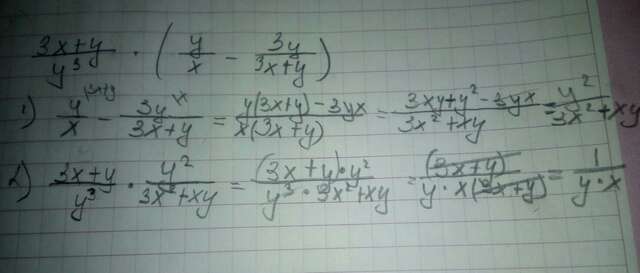 (3x+y)/y³ · (y/x − 3y/(3x+y))
1) y/x − 3y/(3x+y) = (y(3x+y) − 3yx)/(x(3x+y)) = (3xy+y² − 3yx)/(3x²+xy) = y²/(3x²+xy)
2) (3x+y)/y³ · y²/(3x²+xy) = ((3x+y)·y²)/(y³·3x²+xy) = (3x+y)/(y·x(3x+y)) = 1/(y·x)